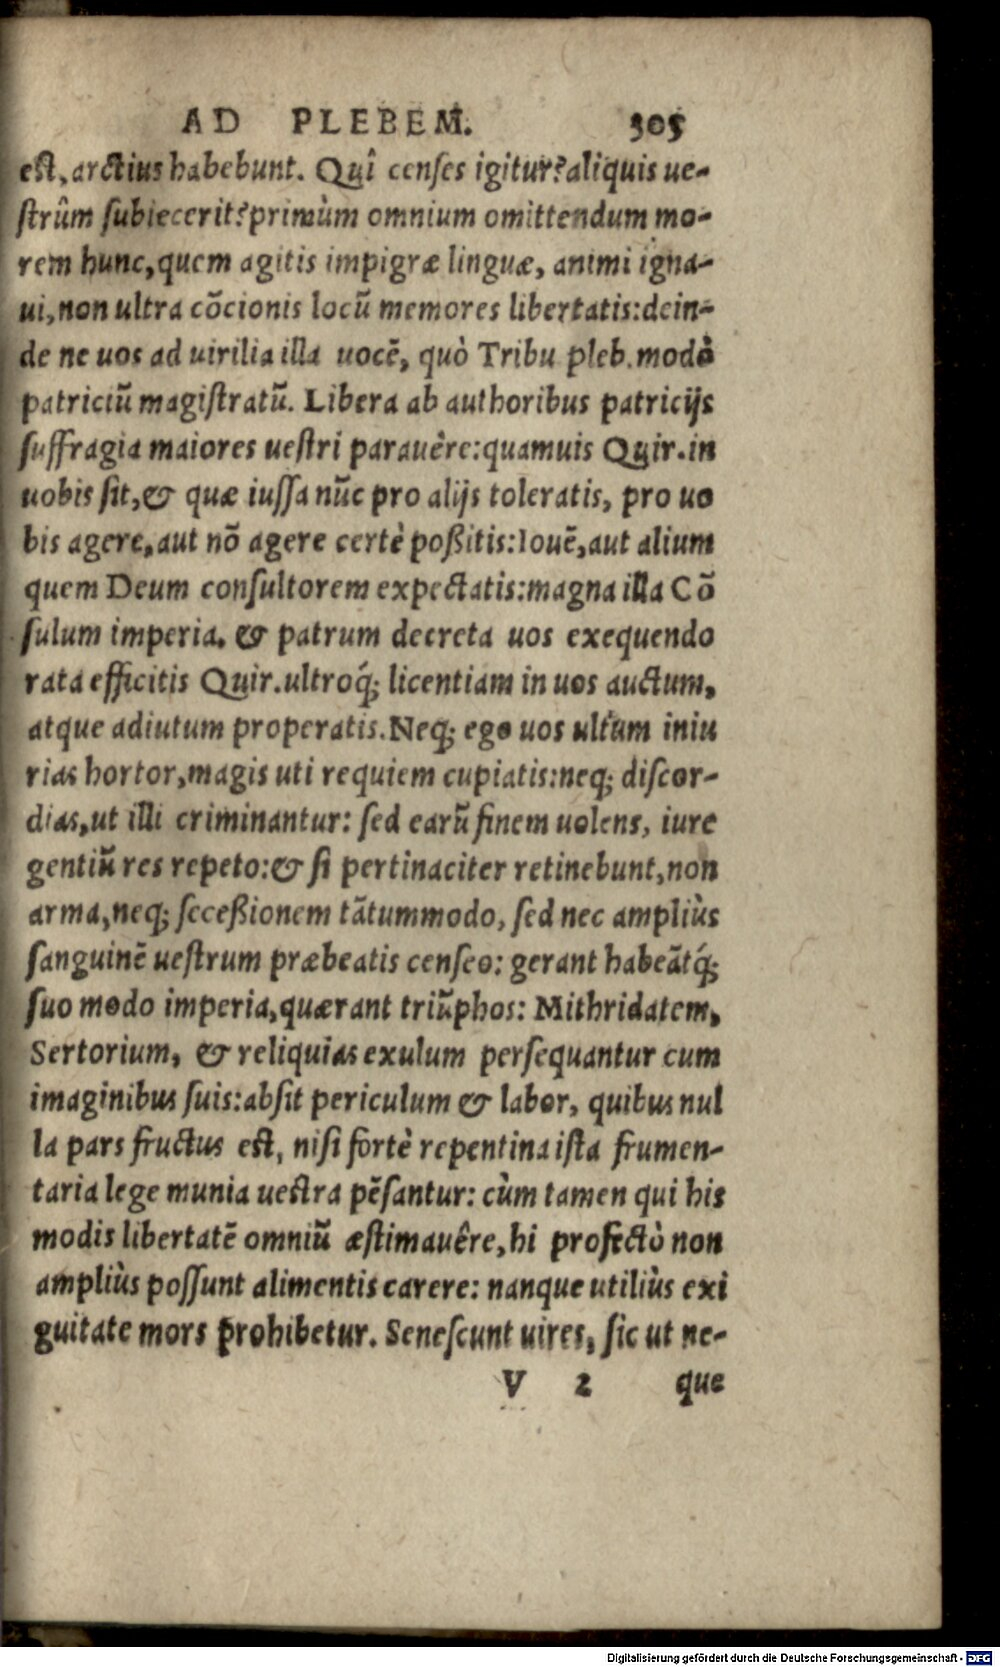 AD PLEBEM. 305
est, arctius habebunt. Quî censes igitur? aliquis ue-
strûm subiecerit? primùm omnium omittendum mo-
rem hunc, quem agitis impigræ linguæ, animi igna-
ui, non ultra cõcionis locũ memores libertatis: dein-
de ne uos ad uirilia illa uocẽ, quò Tribu pleb. modò
patriciũ magistratũ. Libera ab authoribus patricijs
suffragia maiores uestri parauêre: quamuis Quir. in
uobis sit, & quæ iussa nũc pro alijs toleratis, pro uo
bis agere, aut nõ agere certè poßitis: Iouẽ, aut alium
quem Deum consultorem expectatis: magna illa Cõ
sulum imperia, & patrum decreta uos exequendo
rata efficitis Quir. ultroq́; licentiam in uos auctum,
atque adiutum properatis. Neq; ego uos ultum iniu
rias hortor, magis uti requiem cupiatis: neq; discor-
dias, ut illi criminantur: sed earũ finem uolens, iure
gentiũ res repeto: & si pertinaciter retinebunt, non
arma, neq; seceßionem tãtummodo, sed nec ampliùs
sanguinẽ uestrum præbeatis censeo: gerant habeãtq́;
suo modo imperia, quærant triũphos: Mithridatem,
Sertorium, & reliquias exulum persequantur cum
imaginibus suis: absit periculum & labor, quibus nul
la pars fructus est, nisi fortè repentina ista frumen-
taria lege munia uestra pẽsantur: cùm tamen qui his
modis libertatẽ omniũ æstimauêre, hi profectò non
ampliùs possunt alimentis carere: nanque utiliùs exi
guitate mors prohibetur. Senescunt uires, sic ut ne-
V 2 que
Digitalisierung gefördert durch die Deutsche Forschungsgemeinschaft - DFG